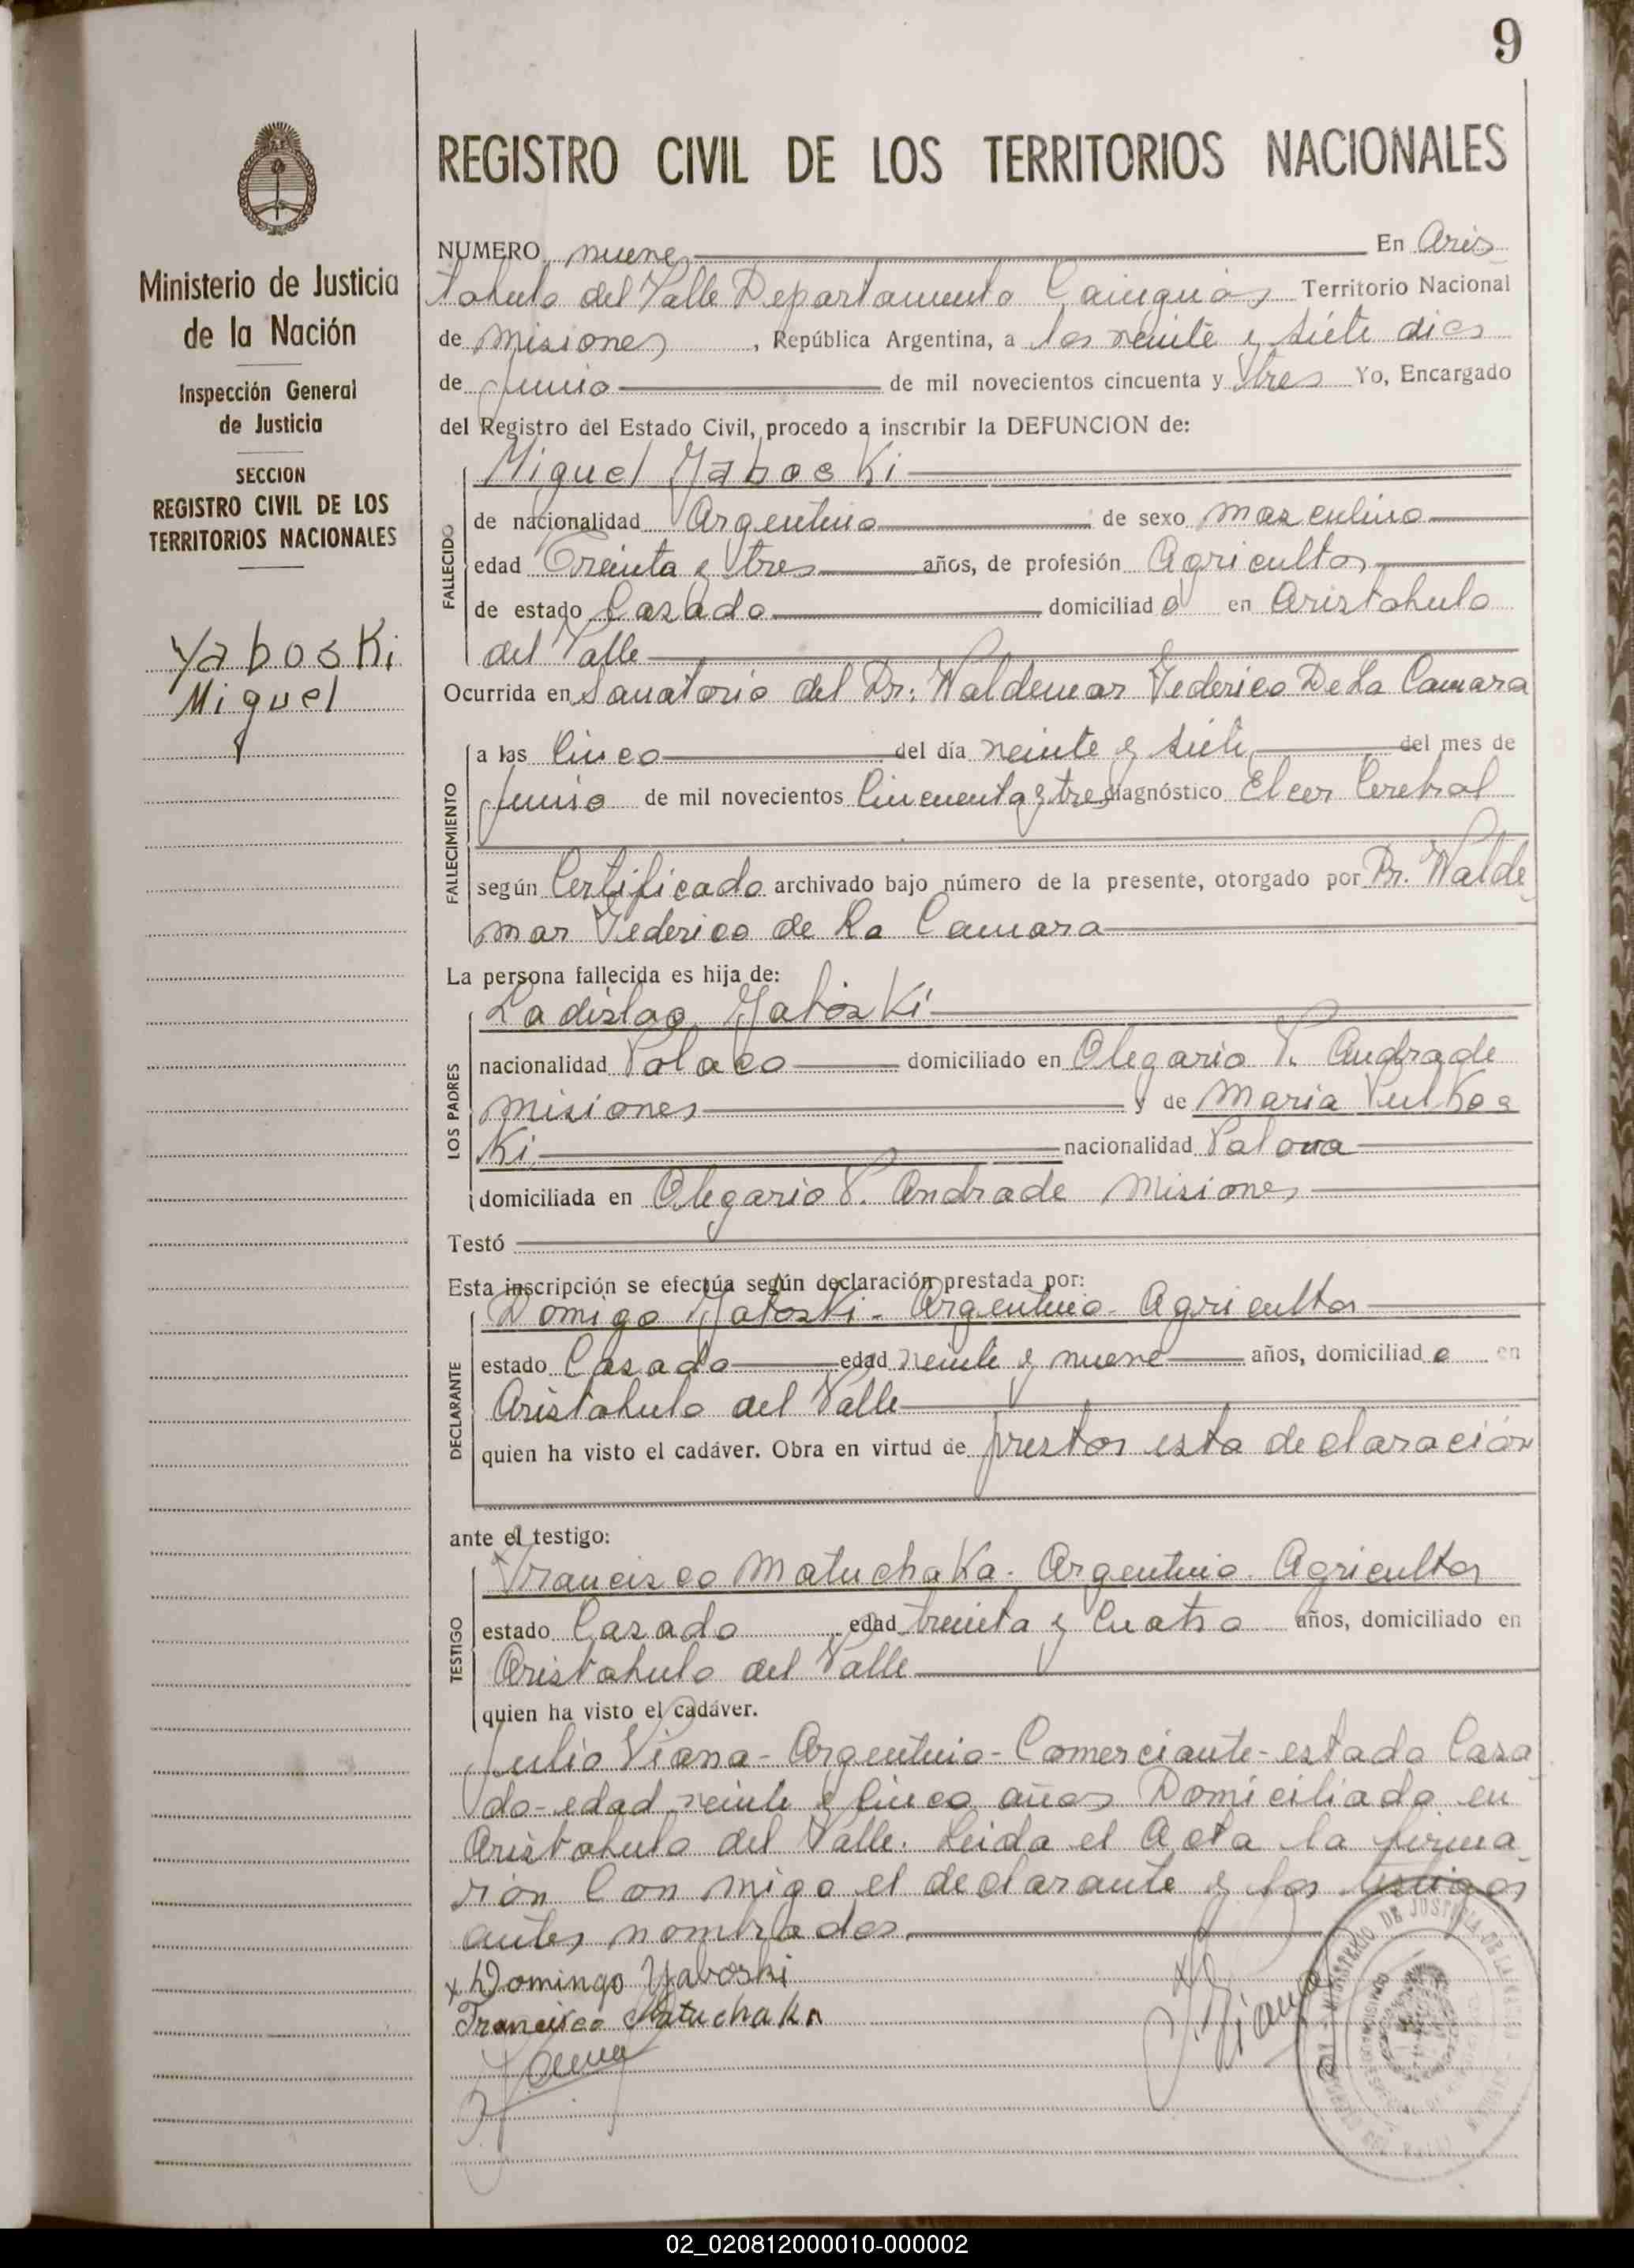 9
REGISTRO CIVIL DE LOS TERRITORIOS NACIONALES
Ministerio de Justicia
de la Nación
Inspección General
de Justicia
SECCION
REGISTRO CIVIL DE LOS
TERRITORIOS NACIONALES
Yaboski
Miguel
NUMERO nueve En Aris
tobulo del Valle Departamento Cainguás Territorio Nacional
de Misiones, República Argentina, a los veinte y siete dias
de Junio de mil novecientos cincuenta y tres Yo, Encargado
del Registro del Estado Civil, procedo a inscribir la DEFUNCION de:
FALLECIDO
Miguel Yaboski
de nacionalidad Argentino de sexo masculino
edad Treinta y tres años, de profesión Agricultor
de estado Casado domiciliado en Aristobulo
del Valle
Ocurrida en Sanatorio del Dr: Waldemar Federico De La Camara
FALLECIMIENTO
a las Cinco del día veinte y siete del mes de
Junio de mil novecientos Cincuenta y tres diagnóstico Elcer Cerebral
según Certificado archivado bajo número de la presente, otorgado por Dr. Walde
mar Federico de La Camara
La persona fallecida es hija de:
LOS PADRES
Ladislao Yaboski
nacionalidad Polaco domiciliado en Olegario V. Andrade
Misiones y de Maria Pulkos
Ki nacionalidad Polona
domiciliada en Olegario V. Andrade Misiones
Testó
Esta inscripción se efectúa según declaración prestada por:
DECLARANTE
Domigo Yaboski - Argentino - Agricultor
estado Casado edad veinte y nueve años, domiciliado en
Aristobulo del Valle
quien ha visto el cadáver. Obra en virtud de prestar esta declaración
ante el testigo:
TESTIGO
Francisco Matuchaka - Argentino - Agricultor
estado Casado edad treinta y Cuatro años, domiciliado en
Aristobulo del Valle
quien ha visto el cadáver.
Julio Viana - Argentino - Comerciante - estado Casa
do - edad veinte y cinco años Domiciliado en
Aristobulo del Valle. Leida el Acta la firma
ron Con migo el declarante y los testigos
antes nombrados
x Domingo Yavoski
Francisco Matuchaka
J. Viana
MINISTERIO DE JUSTICIA DE LA NACION
02_020812000010-000002